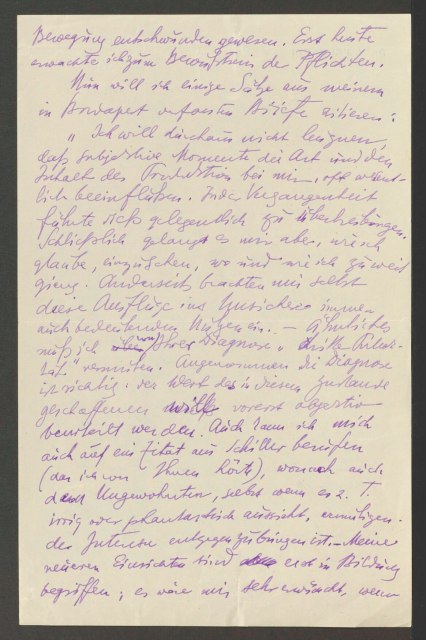 Bewegung entschwunden gewesen. Erst heute
erwachte ich zum Bewußtsein der Pflichten.
Nun will ich einige Sätze aus meinem
in Budapest verfassten Briefe zitieren:
„Ich will durchaus nicht leugnen,
daß subjektive Momente die Art und den
Inhalt der Produktion bei mir, oft wesent-
lich beeinflußen. In der Vergangenheit
führte dieß gelegentlich zu Übertreibungen.
Schließlich gelangt es mir aber, wie ich
glaube, einzusehen, wo und wie ich zu weit
gieng. Anderseits brachten mir selbst
diese Ausflüge ins Unsichere immer
auch bedeutenden Nutzen ein. — Ähnliches
muß ich von Ihrer Diagnose „dritte Puber-
tät" vermuten. Angenommen die Diagnose
ist richtig: der Wert des in diesem Zustande
geschaffenen vorerst objektiv
beurteilt werden. Auch kann ich mich
auch auf ein Zitat aus Schiller berufen
(das ich von Ihnen hört), wonach auch
dem Ungewohnten, selbst wenn es z. T.
irrig oder phantastisch aussieht, ermutigen-
des Interesse entgegenzubringen ist. — Meine
neueren Einsichten sind erst in Bildung
begriffen; es wäre mir sehr erwünscht, wenn